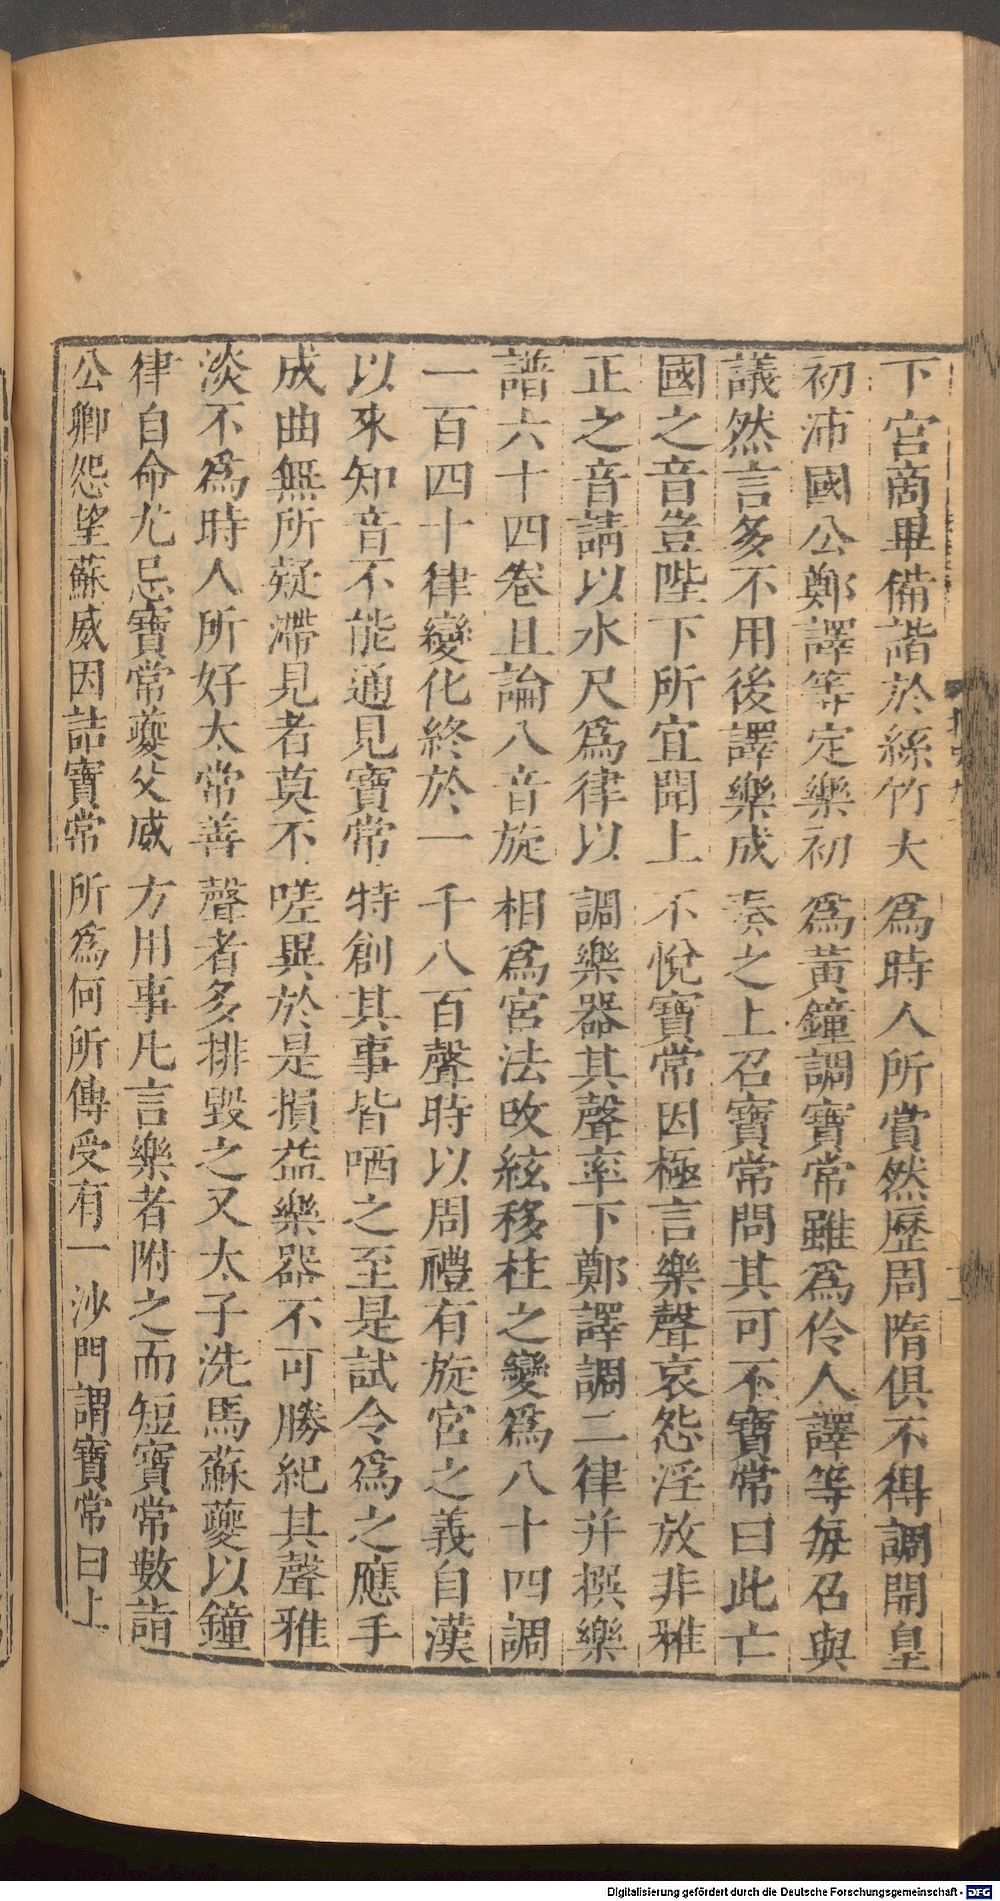 下宮商畢備諧於絲竹大爲時人所賞然歷周隋俱不得調開皇
初沛國公鄭譯等定樂初爲黃鐘調寶常雖爲伶人譯等每召與
議然言多不用後譯樂成奏之上召寶常問其可不寶常曰此亡
國之音豈陛下所宜聞上不悅寶常因極言樂聲哀怨淫放非雅
正之音請以水尺爲律以調樂器其聲率下鄭譯調二律并撰樂
譜六十四卷且論八音旋相爲宮法改絃移柱之變爲八十四調
一百四十律變化終於一千八百聲時以周禮有旋宮之義自漢
以來知音不能通見寶常特創其事皆哂之至是試令爲之應手
成曲無所疑滯見者莫不嗟異於是損益樂器不可勝紀其聲雅
淡不爲時人所好太常善聲者多排毀之又太子洗馬蘇夔以鐘
律自命尤忌寶常夔父威方用事凡言樂者附之而短寶常數詣
公卿怨望蘇威因詰寶常所爲何所傳受有一沙門謂寶常曰上
Digitalisierung gefördert durch die Deutsche Forschungsgemeinschaft - DFG